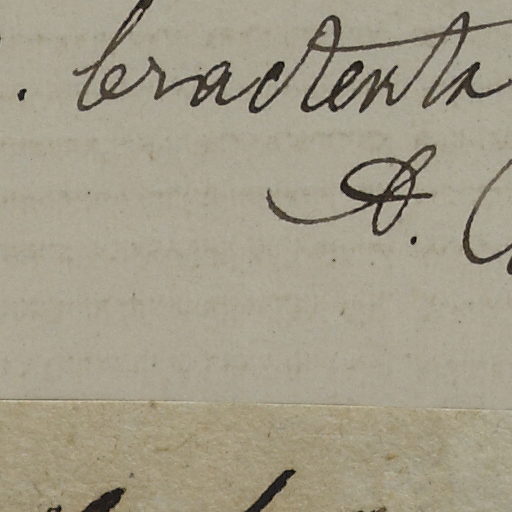 . bracteata
A.